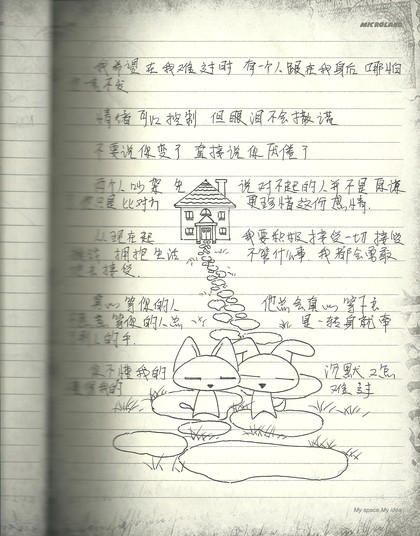 MICROLAND
我希望在我难过时 有一个人跟在我身后 哪怕
一言不发
情绪可以控制 但眼泪不会撒谎
不要说你变了 直接说你厌倦了
两个人吵架 先 说对不起的人并不是认
只是比对方 更珍惜这份感情
从现在起 我要积极接受一切 接受
挑战 拥抱生活 不管什么事 我都会勇敢
地去接受
真心等你的人 他总会真心等下去
愿意等你的人总 是一转身就牵
别人的手
你不懂我的 沉默 又怎
懂得我的 难过
My space, My idea